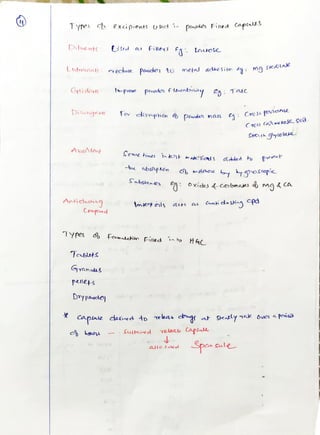 4
Types of excipients used in powder Filled Capsules
Diluents Used as Fillers Eg: Lactose
Lubricants reduce powder to metal adhesion eg. mg stearate
Glidant Improve powder flowability eg: Talc
Disintegrant For disruption of powder mass eg: Cros povidone
Cros carmellose sod
Sodium glycolate
Some times inert materials added to prevent
the absorption of moisture by hygroscopic
Substances eg: oxides & carbonates of mg & ca
Antidusting Inert oils acts as antidusting cpd
Compound
Types of Formulation Filled into HGC
Tablets
Granules
pellets
Drypowder
* Capsule desired to release drugs at steady rate over a period
of hours – Sustained release Capsule
↓
also called Spansule